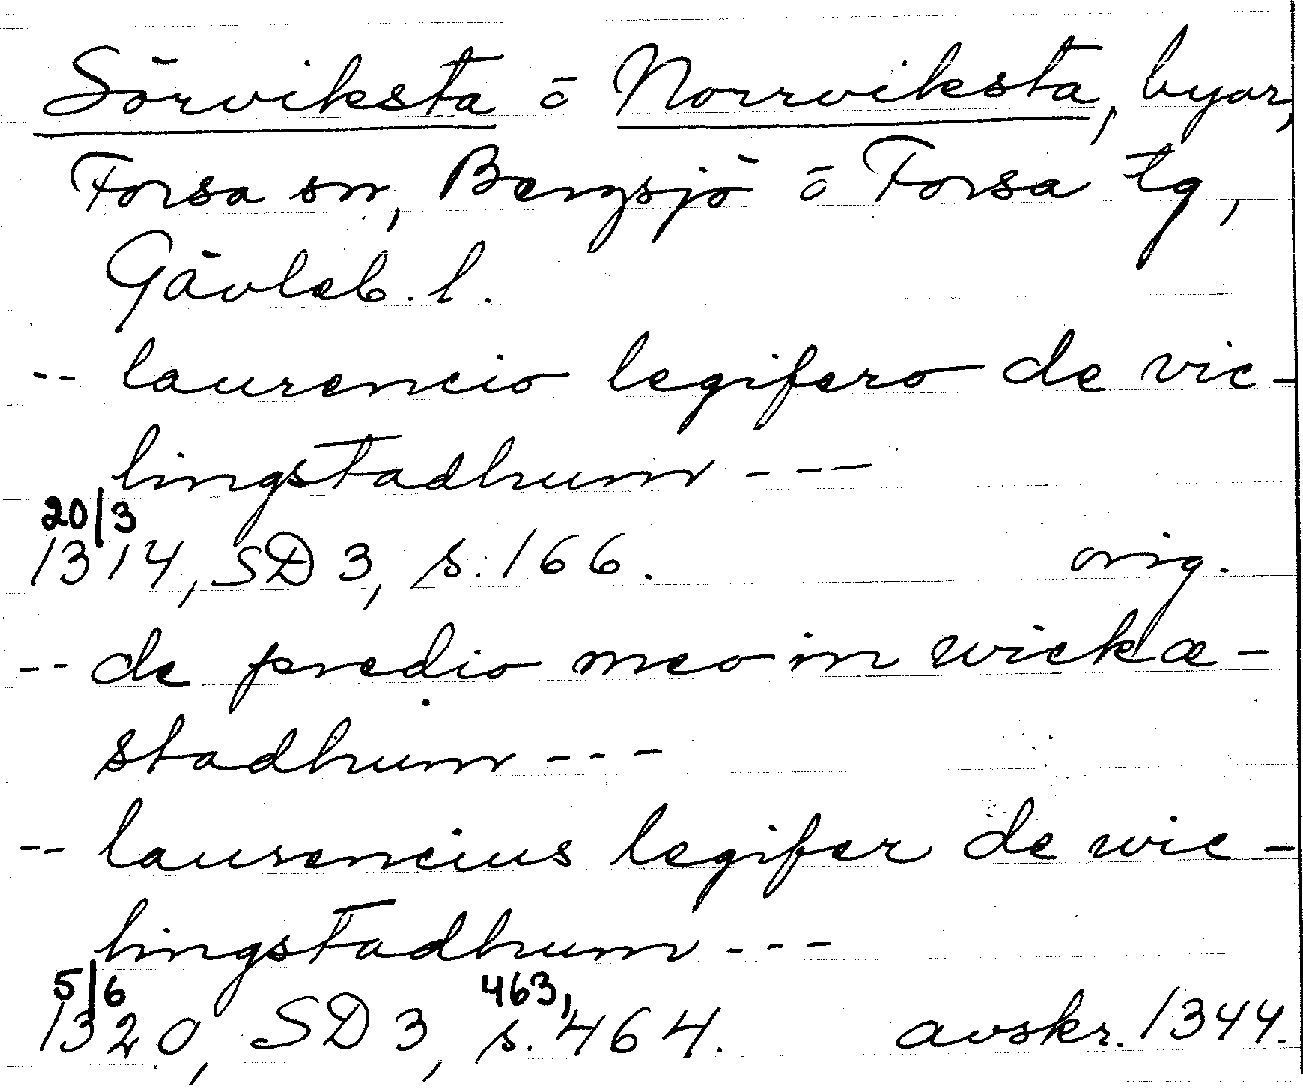 Sörviksta o Norrviksta, byar,
Forsa sn, Bergsjö o Forsa tg,
Gävleb. l.
-- laurencio legifero de vic-
lingstadhum ---
20/3
1314, SD 3, s. 166. orig.
-- de predio meo in wickæ-
stadhum ---
-- laurencius legifer de wic-
lingstadhum ---
5/6 463,
1320, SD 3, s. 464. avskr. 1344.